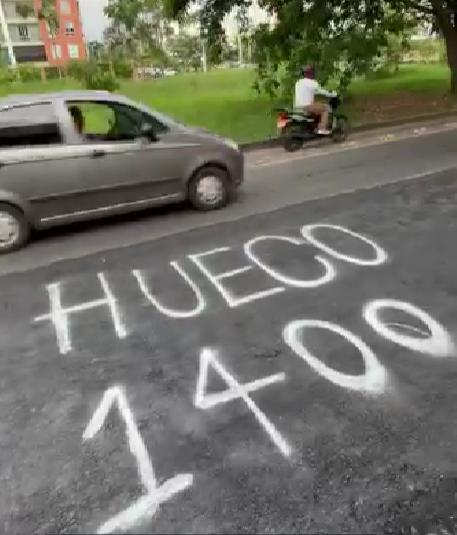 HUECO
1400